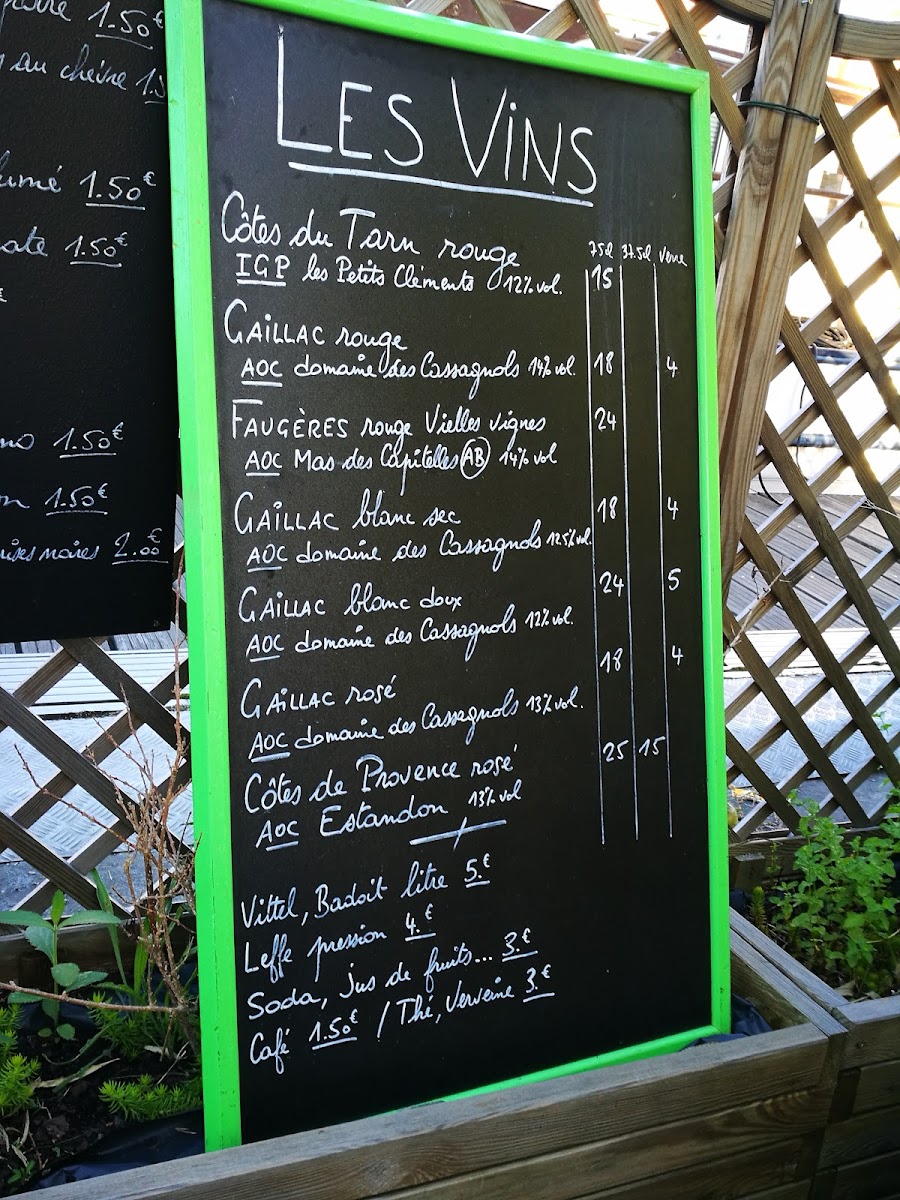 1.50€
au chèvre
1.50€
1.50€
€
1.50€
1.50€
noires 2.00€
LES VINS
75cl 37.5cl verre
Côtes du Tarn rouge
IGP les Petits Cléments 12% vol. 15
GAILLAC rouge
AOC domaine des Cassagnols 14% vol. 18 4
FAUGÈRES rouge Vielles vignes 24
AOC Mas des Capitelles AB 14% vol
GAILLAC blanc sec 18 4
AOC domaine des Cassagnols 12.5% vol.
GAILLAC blanc doux 24 5
AOC domaine des Cassagnols 12% vol.
GAILLAC rosé 18 4
AOC domaine des Cassagnols 13% vol.
Côtes de Provence rosé 25 15
AOC Estandon 13% vol
Vittel, Badoit litre 5.€
Leffe pression 4.€
Soda, jus de fruits... 3.€
Café 1.50€ / Thé, Verveine 3.€